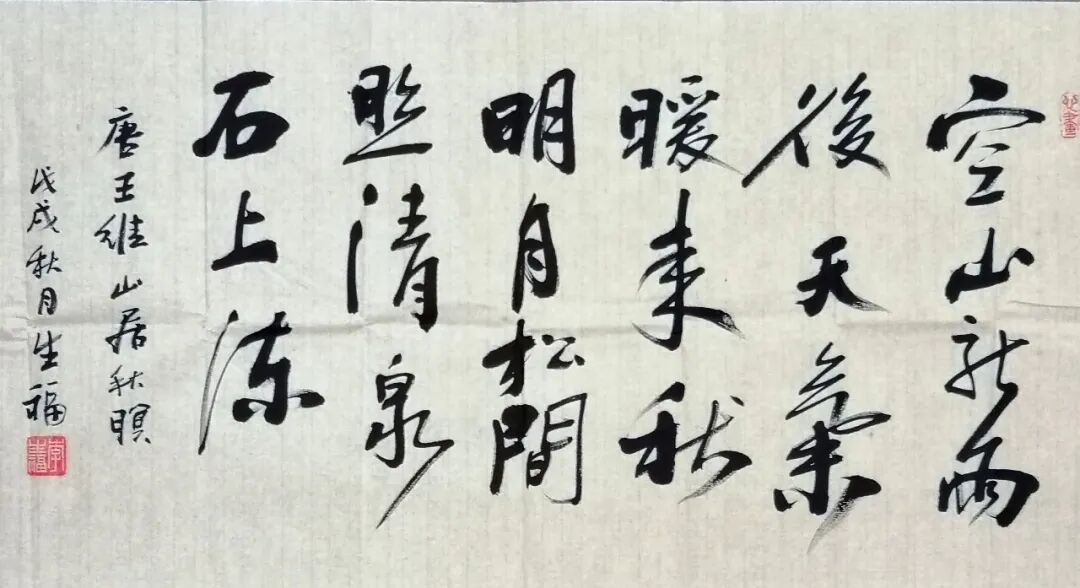 空山新雨
後天氣
暖来秋
明月松間
照清泉
石上流
唐王維山居秋暝
戊戌秋月生福